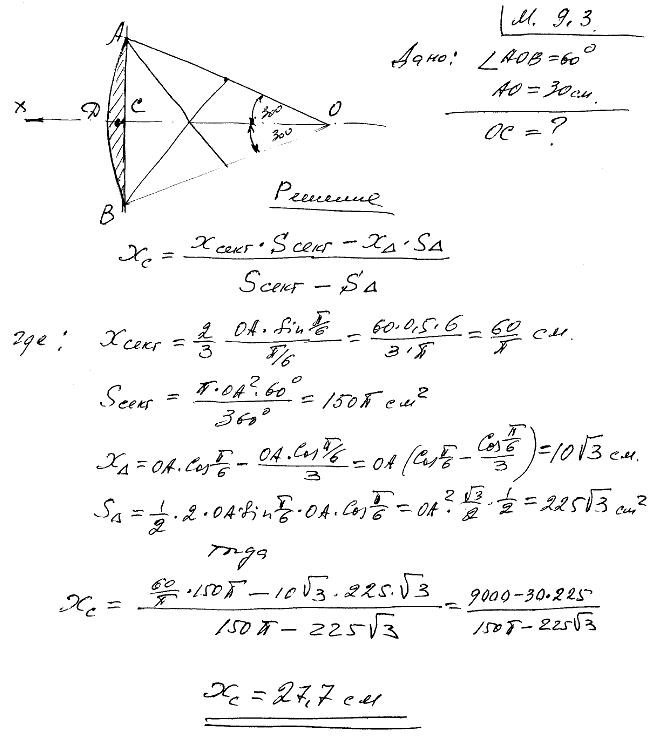 М. 9.3.
Дано: ∠AOB = 60°
AO = 30 см.
OC = ?
A
x D C O
30° 30°
B
Решение
x_c = (x_сект · S_сект − x_Δ · S_Δ) / (S_сект − S_Δ)
где: x_сект = 2/3 · (OA · Sin π/6) / (π/6) = (60 · 0,5 · 6) / (3 · π) = 60/π см.
S_сект = (π · OA² · 60°) / 360° = 150π см²
x_Δ = OA · Cos π/6 − (OA · Cos π/6) / 3 = OA (Cos π/6 − (Cos π/6) / 3) = 10√3 см.
S_Δ = 1/2 · 2 · OA · Sin π/6 · OA · Cos π/6 = OA² · √3/2 · 1/2 = 225√3 см²
тогда
x_c = (60/π · 150π − 10√3 · 225 · √3) / (150π − 225√3) = (9000 − 30 · 225) / (150π − 225√3)
x_c = 27,7 см